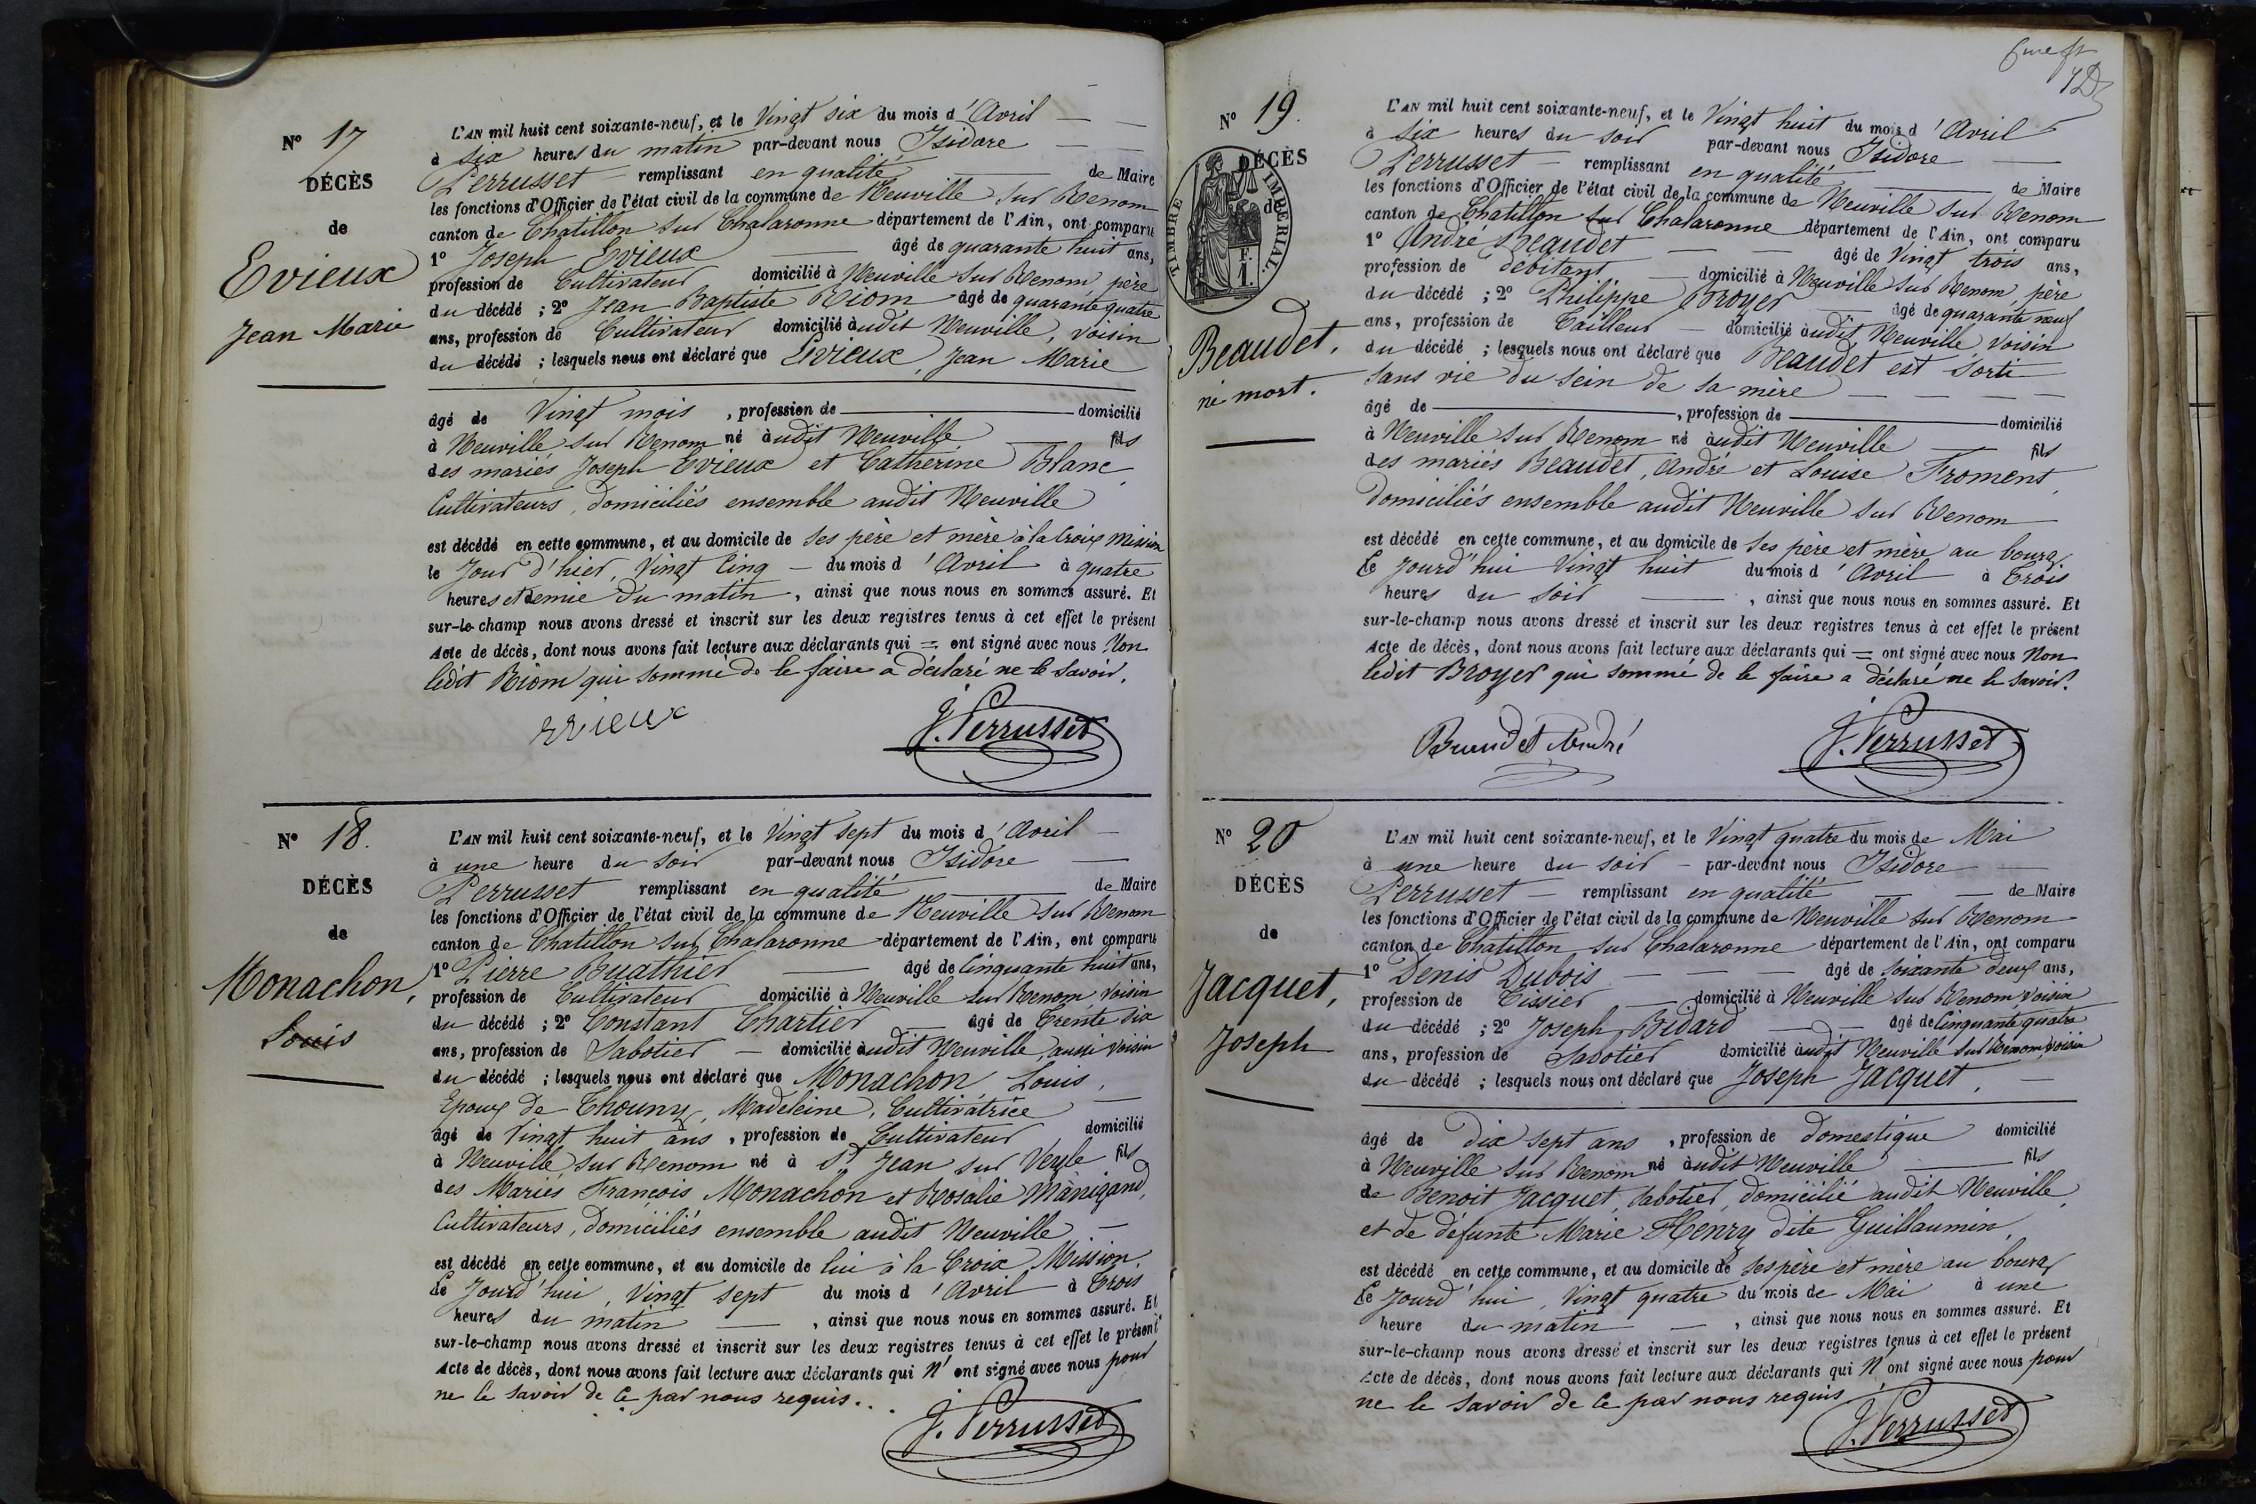 N° 17
DÉCÈS
de
Evieux
Jean Marie
L'AN mil huit cent soixante-neuf, et le Vingt six du mois d'Avril
à six heures du matin par-devant nous Isidore
Perrusset remplissant en qualité de Maire
les fonctions d'Officier de l'état civil de la commune de Neuville sur Renom
canton de Chatillon sur Chalaronne département de l'Ain, ont comparu
1° Joseph Evieux âgé de quarante huit ans,
profession de Cultivateur domicilié à Neuville sur Renom, père
du décédé ; 2° Jean Baptiste Riom âgé de quarante quatre
ans, profession de Cultivateur domicilié audit Neuville, voisin
du décédé ; lesquels nous ont déclaré que Evieux, Jean Marie
âgé de Vingt mois , profession de domicilié
à Neuville sur Renom né audit Neuville fils
des mariés Joseph Evieux et Catherine Blanc,
Cultivateurs, domiciliés ensemble audit Neuville
est décédé en cette commune, et au domicile de ses père et mère à la Croix Mission
le Jour d'hier, Vingt Cinq du mois d'Avril à quatre
heures et demie du matin , ainsi que nous nous en sommes assuré. Et
sur-le-champ nous avons dressé et inscrit sur les deux registres tenus à cet effet le présent
Acte de décès, dont nous avons fait lecture aux déclarants qui = ont signé avec nous Non
ledit Riom qui sommé de le faire a déclaré ne le savoir.
Evieux J. Perrusset
N° 18.
DÉCÈS
de
Monachon,
Louis
L'AN mil huit cent soixante-neuf, et le Vingt sept du mois d'Avril
à une heure du soir par-devant nous Isidore
Perrusset remplissant en qualité de Maire
les fonctions d'Officier de l'état civil de la commune de Neuville sur Renom
canton de Chatillon sur Chalaronne département de l'Ain, ont comparu
1° Pierre Buathier âgé de Cinquante huit ans,
profession de Cultivateur domicilié à Neuville sur Renom voisin
du décédé ; 2° Constant Chartier âgé de Trente six
ans, profession de Sabotier domicilié audit Neuville, aussi voisin
du décédé ; lesquels nous ont déclaré que Monachon Louis,
Epoux de Chouny, Madeleine, Cultivatrice
âgé de Vingt huit ans , profession de Cultivateur domicilié
à Neuville sur Renom né à St Jean sur Veyle fils
des Mariés François Monachon et Rosalie Manigand,
Cultivateurs, domiciliés ensemble audit Neuville
est décédé en cette commune, et au domicile de lui à la Croix Mission.
le Jourd'hui, Vingt sept du mois d'Avril à Trois
heures du matin , ainsi que nous nous en sommes assuré. Et
sur-le-champ nous avons dressé et inscrit sur les deux registres tenus à cet effet le présent
Acte de décès, dont nous avons fait lecture aux déclarants qui N'ont signé avec nous pour
ne le savoir de ce par nous requis...
J. Perrusset
N° 19.
DÉCÈS
de
TIMBRE IMPÉRIAL.
F.
1.
Beaudet,
né mort.
L'AN mil huit cent soixante-neuf, et le Vingt huit du mois d'Avril
à six heures du soir par-devant nous Isidore
Perrusset remplissant en qualité de Maire
les fonctions d'Officier de l'état civil de la commune de Neuville sur Renom
canton de Chatillon sur Chalaronne département de l'Ain, ont comparu
1° André Beaudet âgé de Vingt trois ans,
profession de débitant, domicilié à Neuville sur Renom, père
du décédé ; 2° Philippe Broyer âgé de quarante neuf
ans, profession de Tailleur domicilié audit Neuville, voisin
du décédé ; lesquels nous ont déclaré que Beaudet est sorti
sans vie du sein de sa mère
âgé de , profession de domicilié
à Neuville sur Renom né audit Neuville fils
des mariés Beaudet, André et Louise Froment,
Domiciliés ensemble audit Neuville sur Renom
est décédé en cette commune, et au domicile de ses père et mère au bourg
Le Jourd'hui Vingt huit du mois d'Avril à Trois
heures du soir , ainsi que nous nous en sommes assuré. Et
sur-le-champ nous avons dressé et inscrit sur les deux registres tenus à cet effet le présent
Acte de décès, dont nous avons fait lecture aux déclarants qui = ont signé avec nous Non
ledit Broyer qui sommé de le faire a déclaré ne le savoir.
Beaudet André J. Perrusset
N° 20
DÉCÈS
de
Jacquet,
Joseph
L'AN mil huit cent soixante-neuf, et le Vingt quatre du mois de Mai
à une heure du soir par-devant nous Isidore
Perrusset remplissant en qualité de Maire
les fonctions d'Officier de l'état civil de la commune de Neuville sur Renom
canton de Chatillon sur Chalaronne département de l'Ain, ont comparu
1° Denis Dubois âgé de soixante deux ans,
profession de Tissier domicilié à Neuville sur Renom voisin
du décédé ; 2° Joseph Bridard âgé de Cinquante quatre
ans, profession de Sabotier domicilié audit Neuville sur Renom voisin
du décédé ; lesquels nous ont déclaré que Joseph Jacquet,
âgé de dix sept ans , profession de domestique domicilié
à Neuville sur Renom né audit Neuville fils
de Benoit Jacquet, sabotier, domicilié audit Neuville,
et de défunte Marie Henry dite Guillaumin,
est décédé en cette commune, et au domicile de ses père et mère au bourg
Le Jourd'hui, Vingt quatre du mois de Mai à une
heure du matin , ainsi que nous nous en sommes assuré. Et
sur-le-champ nous avons dressé et inscrit sur les deux registres tenus à cet effet le présent
Acte de décès, dont nous avons fait lecture aux déclarants qui N'ont signé avec nous pour
ne le savoir de ce par nous requis
J. Perrusset